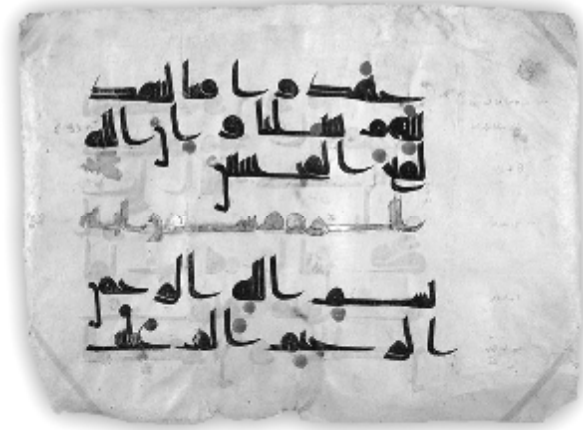 جهدوا فينا لنهد
ينهم سبلنا و ان الله
لمع المحسنين
الروم ستون ايه
بسم الله الرحمن
الرحيم الم غلبت